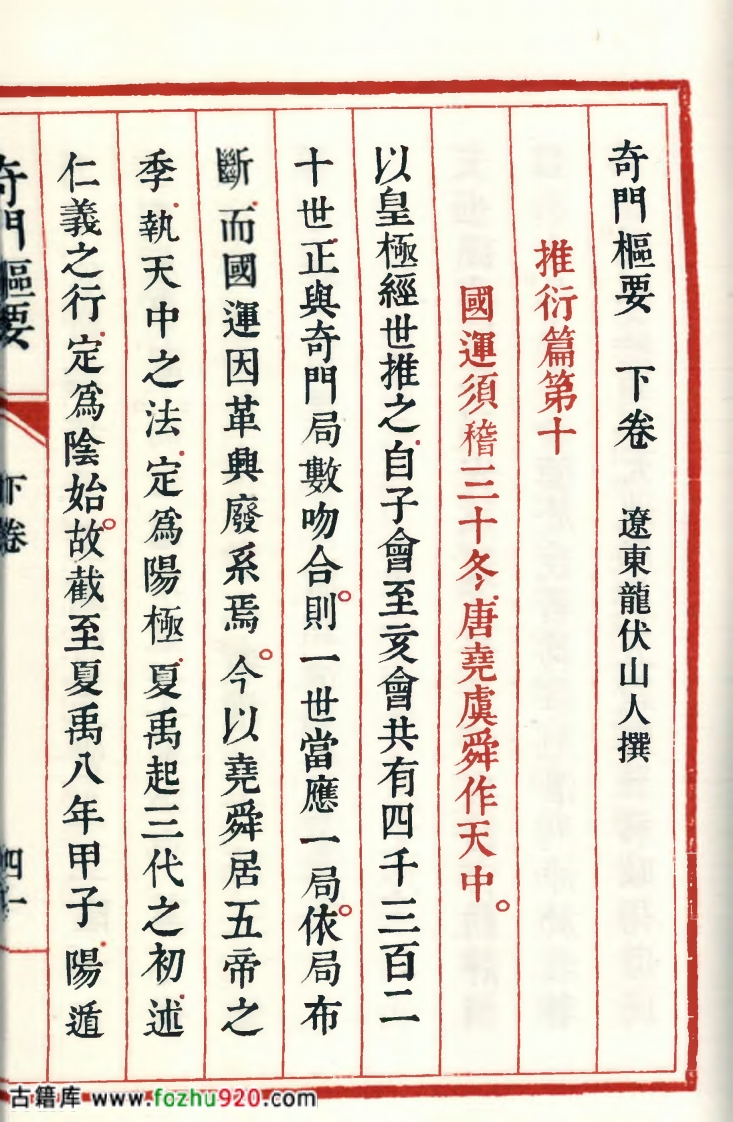 奇門樞要　下卷　遼東龍伏山人撰
推衍篇第十
國運須稽三十冬唐堯虞舜作天中。
以皇極經世推之自子會至亥會共有四千三百二
十世正與奇門局數吻合。則一世當應一局。依局布
斷而國運因革興廢系焉。今以堯舜居五帝之
季執天中之法定為陽極夏禹起三代之初述
仁義之行定為陰始。故截至夏禹八年甲子陽遁
奇門樞要
下卷
古籍库 www.fozhu920.com